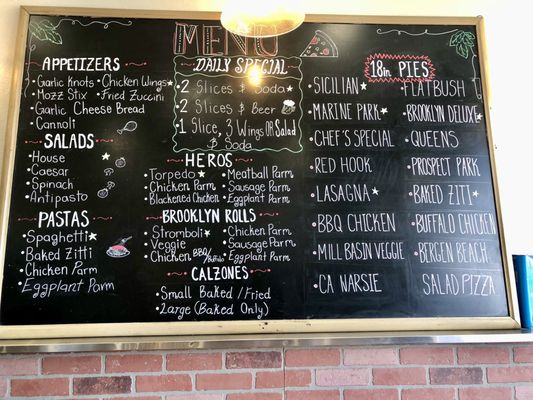 MENU
APPETIZERS
• Garlic Knots • Chicken Wings
• Mozz Stix • Fried Zuccini
• Garlic Cheese Bread
• Cannoli
SALADS
• House
• Caesar
• Spinach
• Antipasto
PASTAS
• Spaghetti
• Baked Zitti
• Chicken Parm
• Eggplant Parm
DAILY SPECIAL
• 2 Slices & Soda
• 2 Slices & Beer
• 1 Slice, 3 Wings OR Salad
& Soda
HEROS
• Torpedo • Meatball Parm
• Chicken Parm • Sausage Parm
• Blackened Chicken • Eggplant Parm
BROOKLYN ROLLS
• Stromboli • Chicken Parm
• Veggie • Sausage Parm
• Chicken BBQ/Buffalo • Eggplant Parm
CALZONES
• Small Baked/Fried
• Large (Baked Only)
18in PIES
• SICILIAN • FLATBUSH
• MARINE PARK • BROOKLYN DELUXE
• CHEF'S SPECIAL • QUEENS
• RED HOOK • PROSPECT PARK
• LASAGNA • BAKED ZITI
• BBQ CHICKEN • BUFFALO CHICKEN
• MILL BASIN VEGGIE • BERGEN BEACH
• CA NARSIE SALAD PIZZA